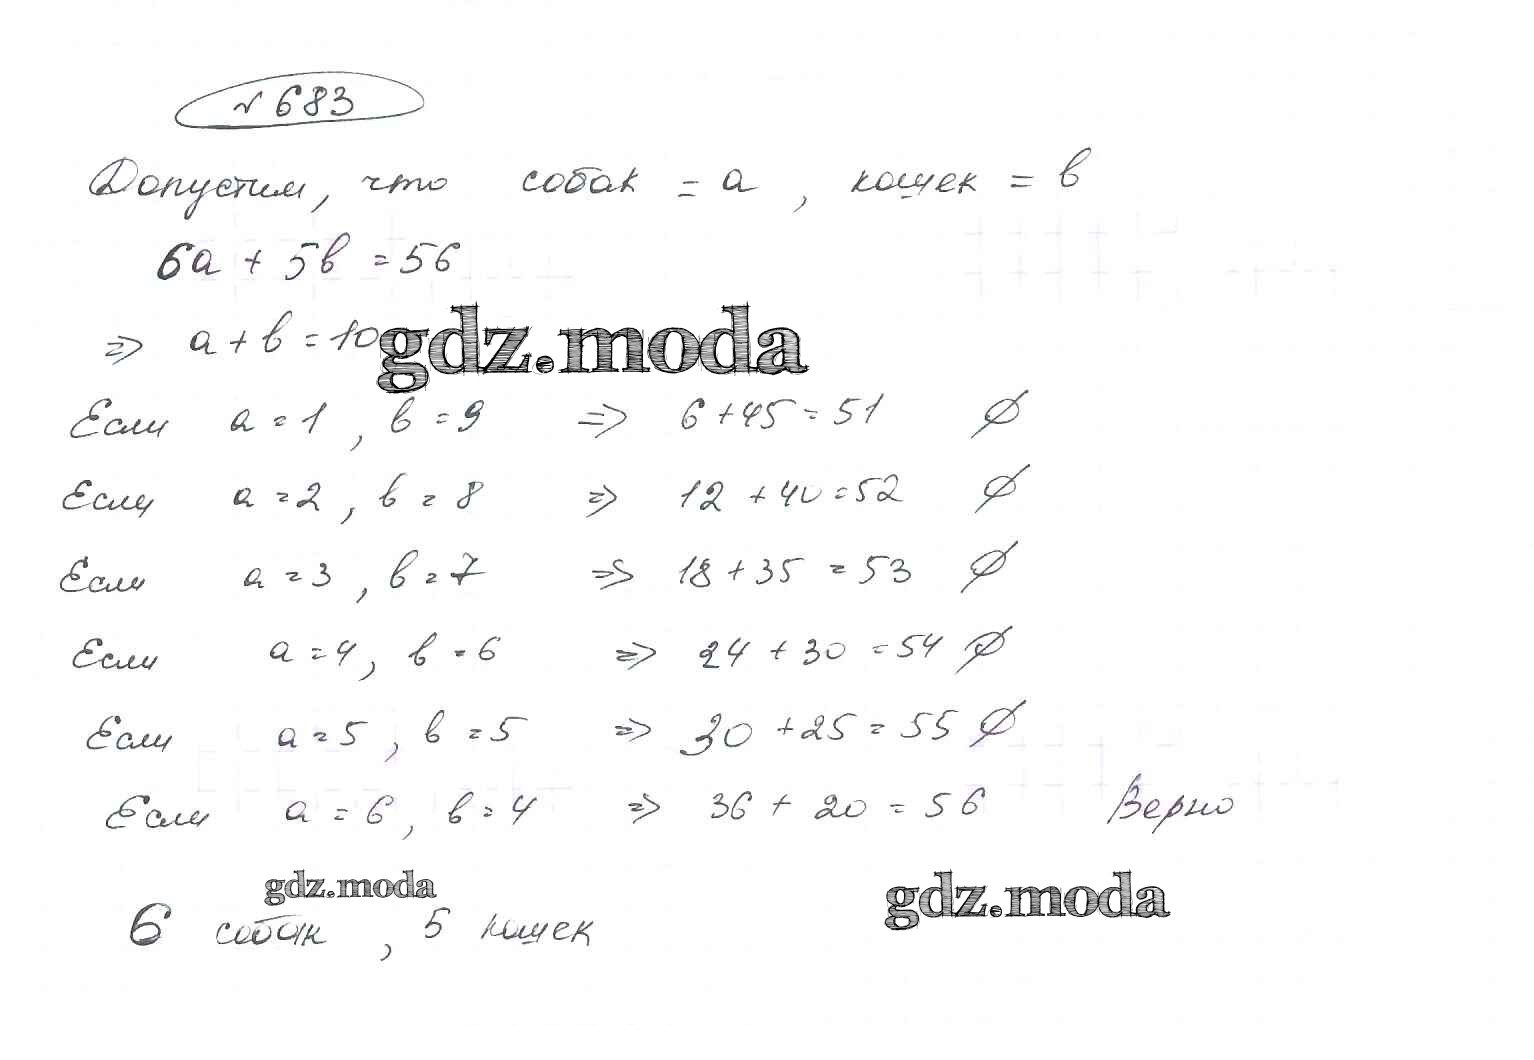 № 683
Допустим, что собак = a, кошек = b
6a + 5b = 56
=> a + b = 10
gdz.moda
Если a = 1, b = 9 => 6 + 45 = 51 ∅
Если a = 2, b = 8 => 12 + 40 = 52 ∅
Если a = 3, b = 7 => 18 + 35 = 53 ∅
Если a = 4, b = 6 => 24 + 30 = 54 ∅
Если a = 5, b = 5 => 30 + 25 = 55 ∅
Если a = 6, b = 4 => 36 + 20 = 56 Верно
gdz.moda
gdz.moda
6 собак, 5 кошек